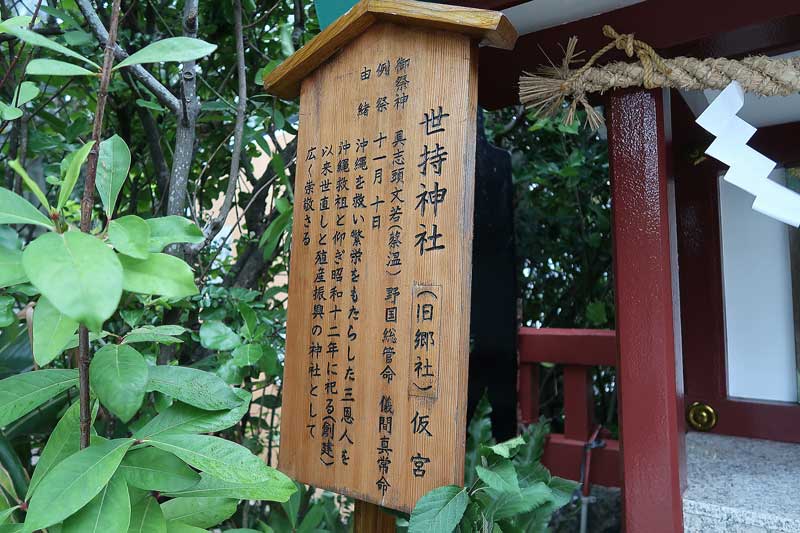 世持神社(旧郷社)仮宮
御祭神 具志頭文若(蔡温) 野国総管命 儀間真常命
例祭 十一月十日
由緒 沖縄を救い繁栄をもたらした三恩人を
沖縄救祖と仰ぎ昭和十二年に祀る(創建)
以来世直しと殖産振興の神社として
広く崇敬さる